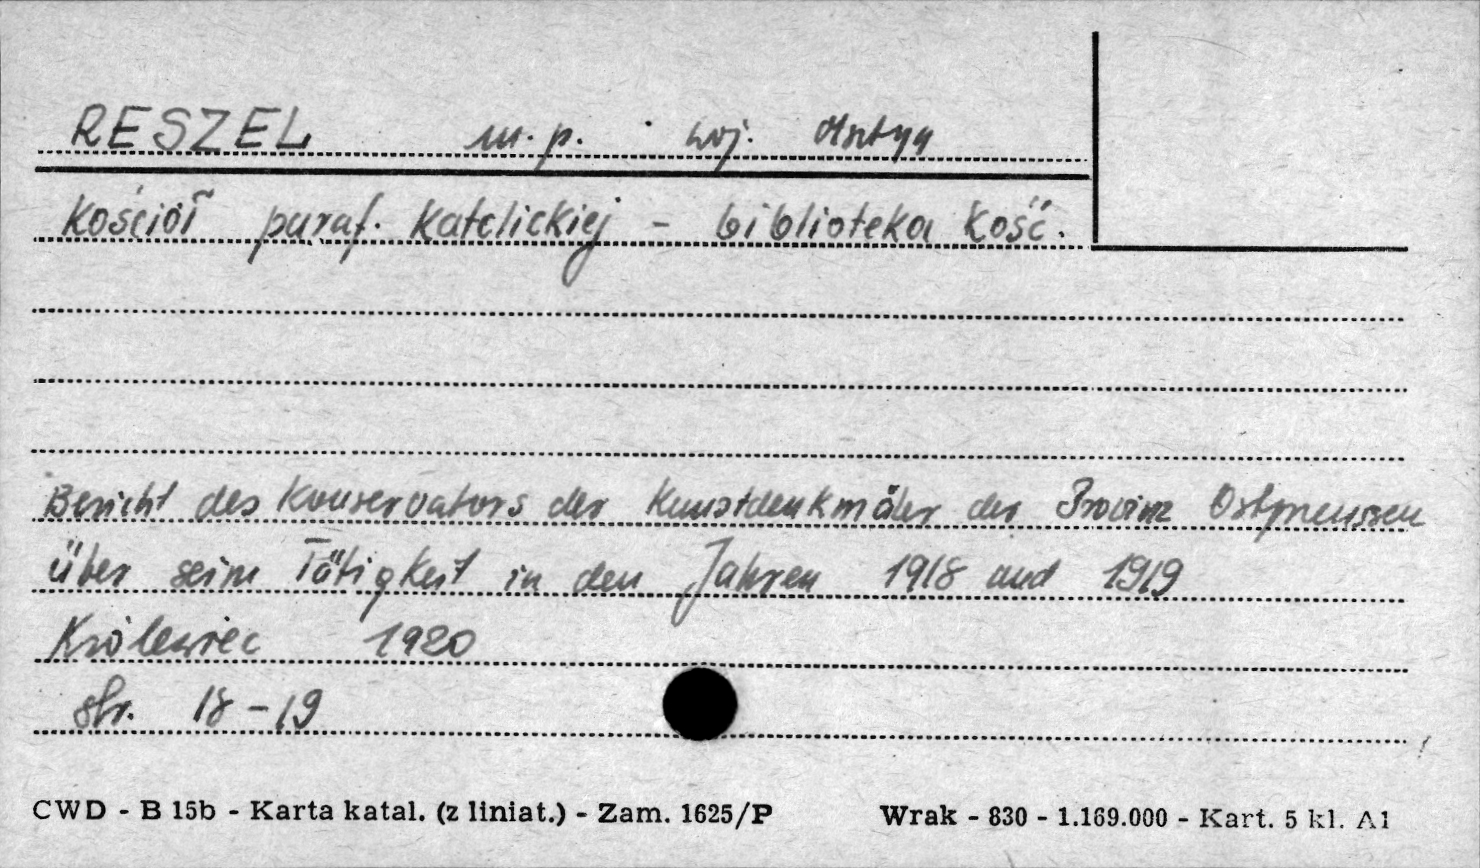 RESZEL m.p. woj. Olsztyn
Kościół paraf. Katolickiej - biblioteka Kość.
Bericht des Konservators der Kunstdenkmäler der Provinz Ostpreussen
über seine Tätigkeit in den Jahren 1918 und 1919
Królewiec 1920
str. 18-19
CWD - B 15b - Karta katal. (z liniat.) - Zam. 1625/P Wrak - 830 - 1.169.000 - Kart. 5 kl. A1